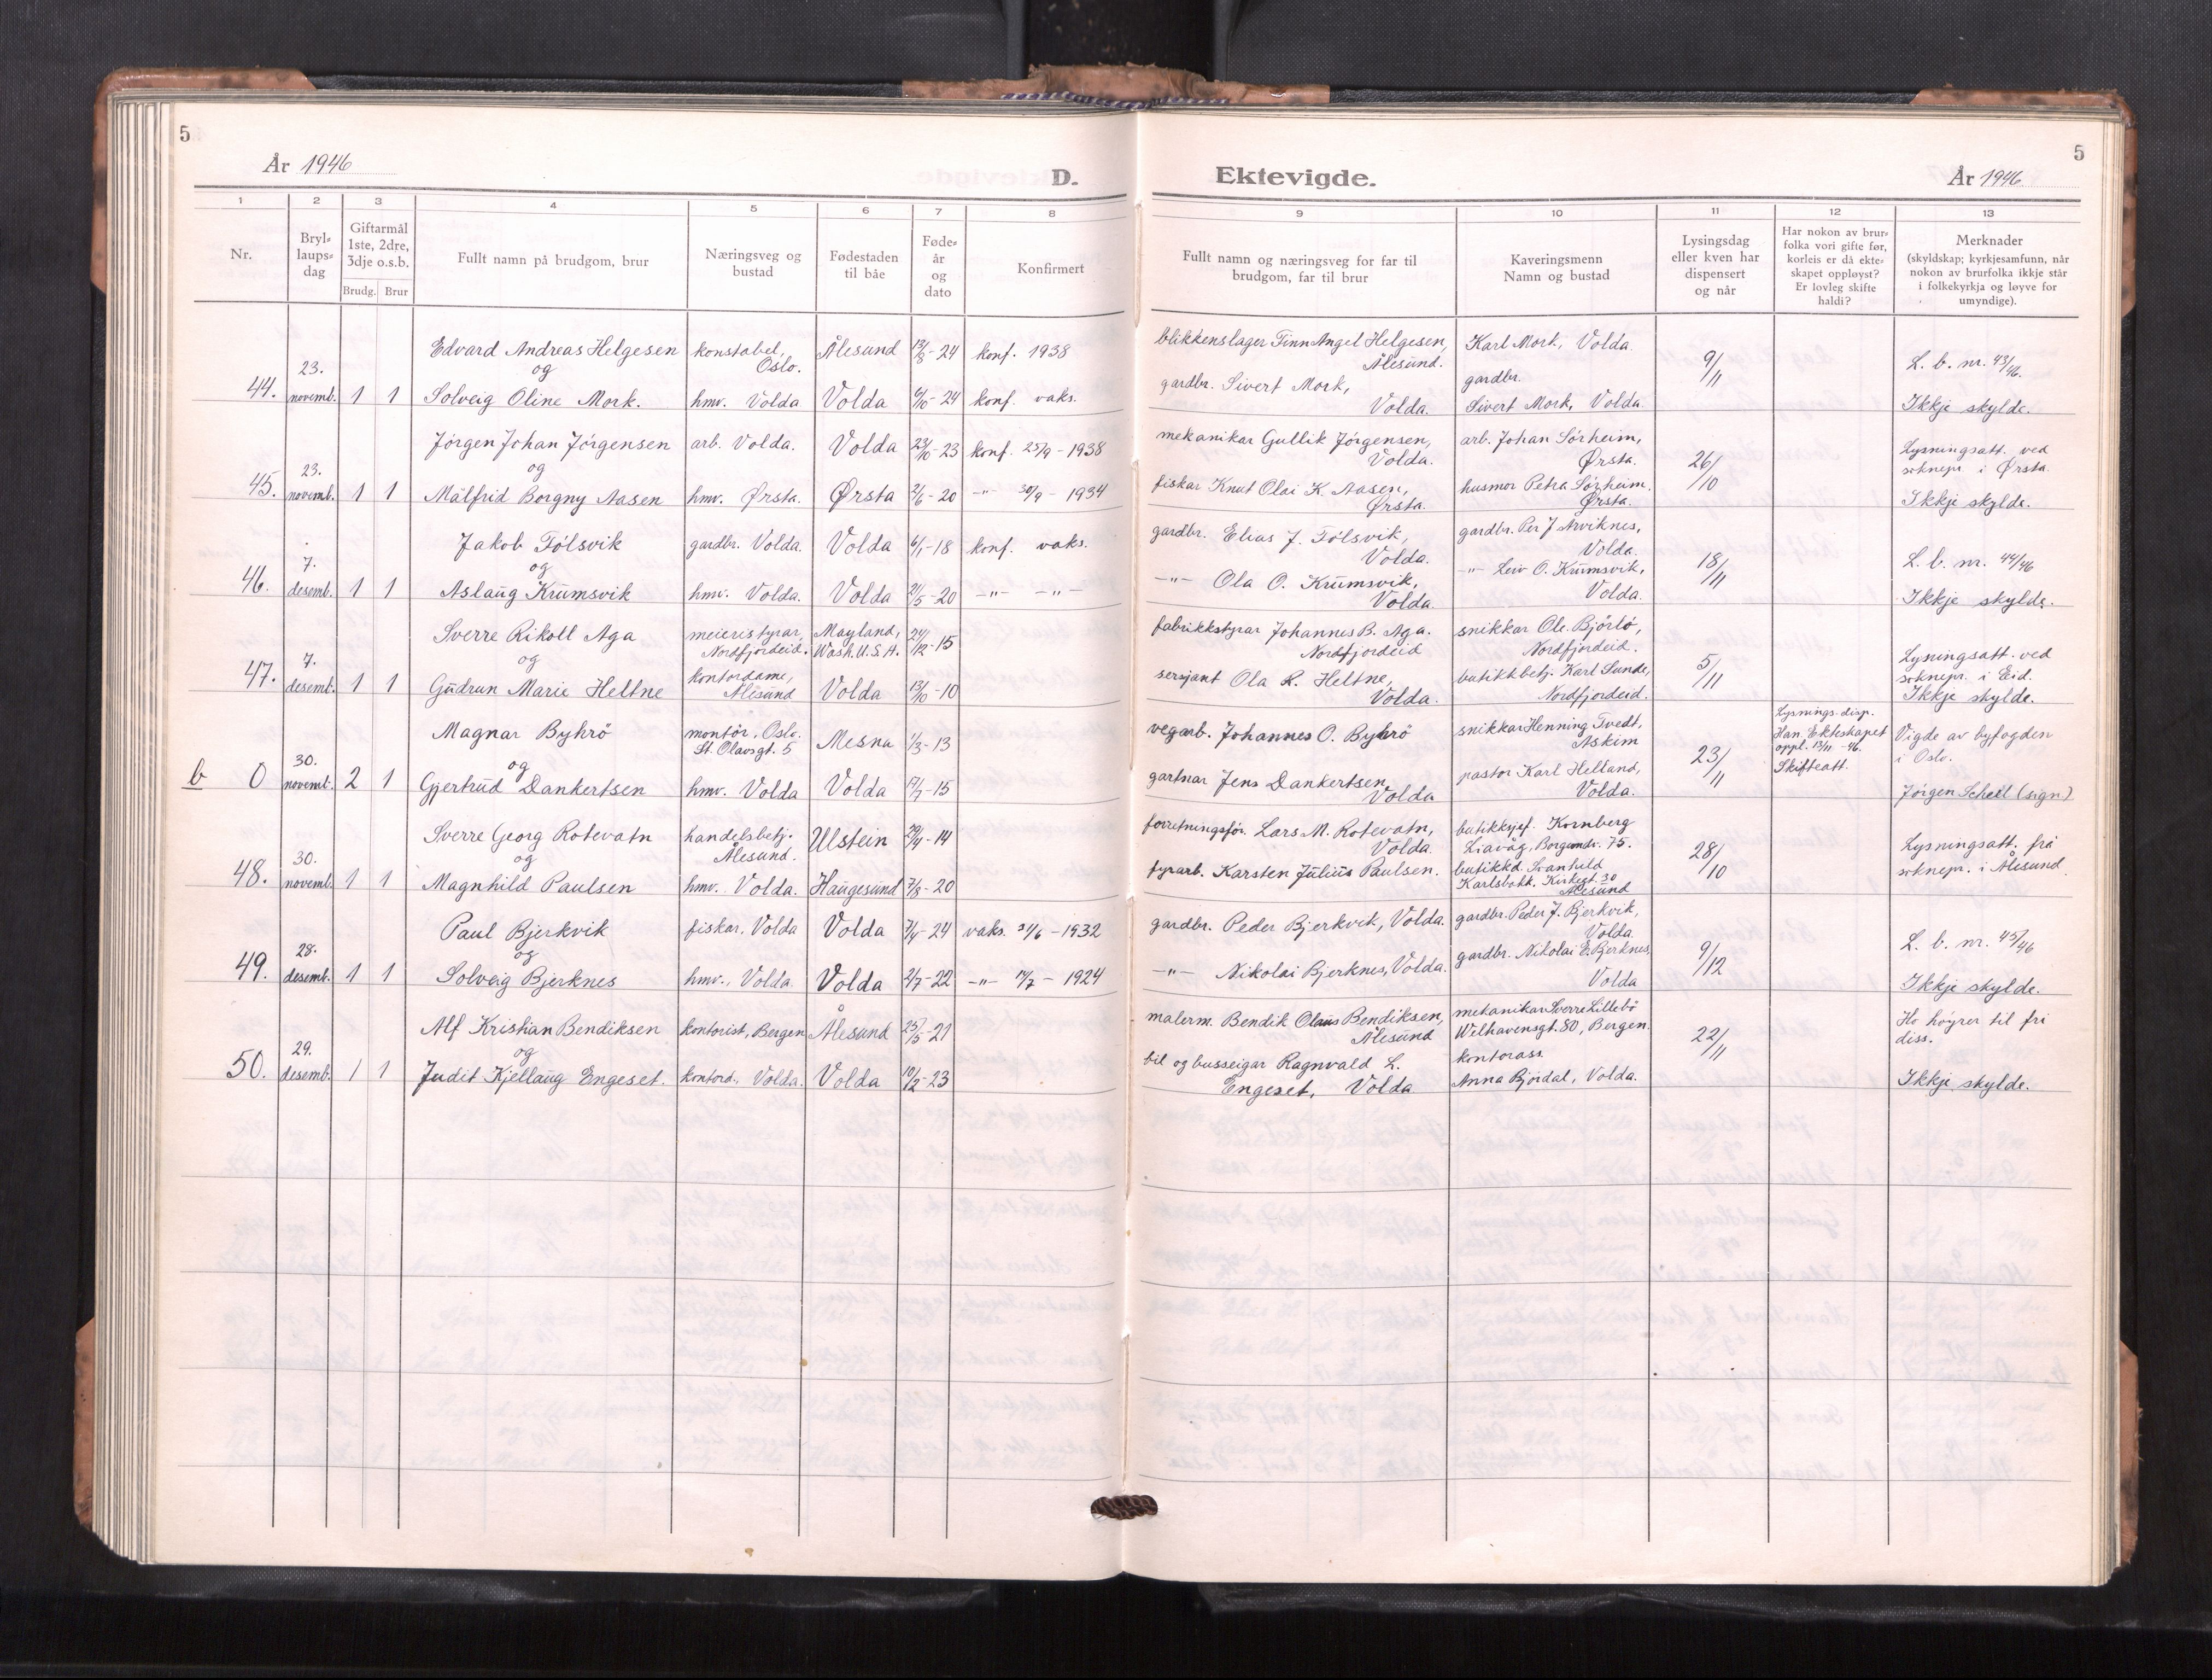 5
År 1946
D.
Ektevigde.
År 1946
5
1 2 3 4 5 6 7 8 9 10 11 12 13
Nr.
Bryl-
laups-
dag
Giftarmål
1ste, 2dre,
3dje o.s.b.
Brudg. Brur
Fullt namn på brudgom, brur
Næringsveg og
bustad
Fødestaden
til båe
Føde-
år
og
dato
Konfirmert
Fullt namn og næringsveg for far til
brudgom, far til brur
Kaveringsmenn
Namn og bustad
Lysingsdag
eller kven har
dispensert
og når
Har nokon av brur-
folka vori gifte før,
korleis er då ekte-
skapet oppløyst?
Er lovleg skifte
haldi?
Merknader
(skyldskap; kyrkjesamfunn, når
nokon av brurfolka ikkje står
i folkekyrkja og løyve for
umyndige).
44.
23.
novemb.
1 1
Edvard Andreas Helgesen
og
Solveig Oline Mork.
konstabel,
Oslo.
hmv. Volda
Ålesund
Volda
13/8-24
6/10-24
konf. 1938
konf. vaks.
blikkenslager Finn Angel Helgesen,
Ålesund.
gardbr. Sivert Mork,
Volda.
Karl Mork, Volda.
gardbr.
Sivert Mork, Volda.
9/11
L. b. nr. 43/46.
Ikkje skylde.
45.
23.
novemb.
1 1
Jørgen Johan Jørgensen
og
Målfrid Borgny Aasen
arb. Volda.
hmv. Ørsta.
Volda
Ørsta
23/10-23
2/6-20
konf. 25/9-1938
-"- 30/9-1934
mekanikar Gullik Jørgensen,
Volda.
fiskar Knut Olai K. Aasen,
Ørsta.
arb. Johan Sørheim,
Ørsta.
husmor Petra Sørheim.
Ørsta.
26/10
Lysningsatt. ved
soknepr. i Ørsta.
Ikkje skylde.
46.
7.
desemb.
1 1
Jakob Følsvik
og
Aslaug Krumsvik
gardbr. Volda.
hmv. Volda.
Volda
Volda
6/1-18
21/5-20
konf. vaks.
-"- -"-
gardbr. Elias J. Følsvik,
Volda.
-"- Ola O. Krumsvik,
Volda.
gardbr. Per J Arviknes,
Volda.
-"- Leiv O. Krumsvik,
Volda.
18/11
L. b. nr. 44/46
Ikkje skylde.
47.
7.
desemb.
1 1
Sverre Rikoll Aga
og
Gudrun Marie Heltne
meieristyrar,
Nordfjordeid.
kontordame,
Ålesund
Mayland,
Wash. U.S.A.
Volda
24/12-15
13/10-10
fabrikkstyrar Johannes B. Aga.
Nordfjordeid
sersjant Ola R. Heltne,
Volda.
snikkar Ole Bjørlø,
Nordfjordeid.
butikkbetj. Karl Sunde,
Nordfjordeid.
5/11
Lysningsatt. ved
soknepr. i Eid.
Ikkje skylde.
b 0
30.
novemb.
2 1
Magnar Byhrö
og
Gjertrud Dankertsen
montör, Oslo.
St. Olavsgt. 5
hmv. Volda
Mesna
Volda
1/3-13
17/7-15
vegarb. Johannes O. Byhrö
gartnar Jens Dankertsen
Volda
snikkar Henning Tvedt,
Askim
pastor Karl Helland,
Volda.
23/11
Lysnings-disp.
Han. Ekteskapet
oppl. 13/11-46.
Skifteatt.
Vigde av byfogden
i Oslo.
Jørgen Schell (sign)
48.
30.
novemb.
1 1
Sverre Georg Rotevatn
og
Magnhild Paulsen
handelsbetj.
Ålesund.
hmv. Volda.
Ulstein
Haugesund
29/4-14
7/8-20
forretningsfør. Lars M. Rotevatn,
Volda.
fyrarb. Karsten Julius Paulsen.
butikksjef. Kornberg
Liavåg, Borgundv. 75.
butikkd. Svanhild
Karlsbakk. Kirkegt. 30
Ålesund
28/10
Lysningsatt. frå
soknepr. i Ålesund.
49.
28.
desemb.
1 1
Paul Bjerkvik
og
Solveig Bjerknes
fiskar, Volda
hmv., Volda.
Volda
Volda
7/4-24
2/7-22
vaks. /6-1932
-"- /7-1924
gardbr. Peder Bjerkvik, Volda.
-"- Nikolai Bjerknes, Volda.
gardbr. Peder J. Bjerkvik,
Volda
gardbr. Nikolai E. Bjerknes,
Volda
9/12
L. b. nr. 45/46
Ikkje skylde.
50.
29.
desemb.
1 1
Alf Kristian Bendiksen
og
Judit Kjellaug Engeset.
kontorist, Bergen
kontord., Volda.
Ålesund
Volda
25/5-21
10/2-23
malerm. Bendik Olaus Bendiksen,
Ålesund
bil og busseigar Ragnvald L.
Engeset, Volda
mekanikar Sverre Lillebö
Welhavensgt. 80, Bergen.
kontorass.
Anna Bjørdal, Volda.
22/11
Ho høyrer til fri
diss.
Ikkje skylde.